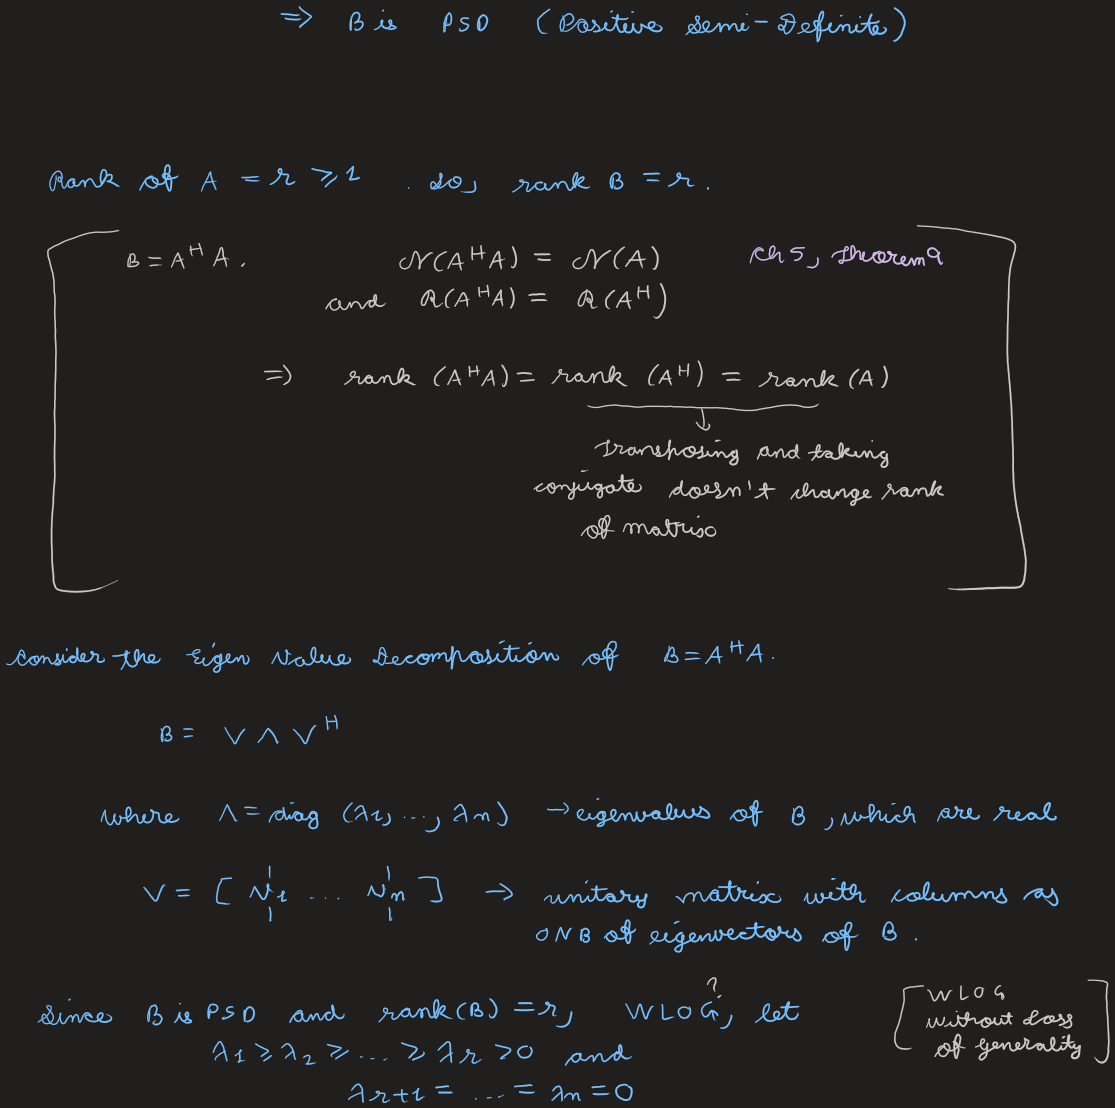 ⇒ B is PSD (Positive Semi-Definite)
Rank of A = r ≥ 1 . So, rank B = r.
B = AᴴA . N(AᴴA) = N(A) Ch 5, Theorem 9
and R(AᴴA) = R(Aᴴ)
⇒ rank (AᴴA) = rank (Aᴴ) = rank (A)
Transposing and taking
conjugate doesn't change rank
of matrix
Consider the Eigen Value Decomposition of B = AᴴA.
B = V Λ Vᴴ
where Λ = diag (λ1, ..., λn) → eigenvalues of B, which are real
V = [ v1 ... vn ] → unitary matrix with columns as
ONB of eigenvectors of B .
?
Since B is PSD and rank(B) = r, WLOG, let
λ1 ≥ λ2 ≥ ... ≥ λr > 0 and
λr+1 = ... = λn = 0
WLOG
without Loss
of generality